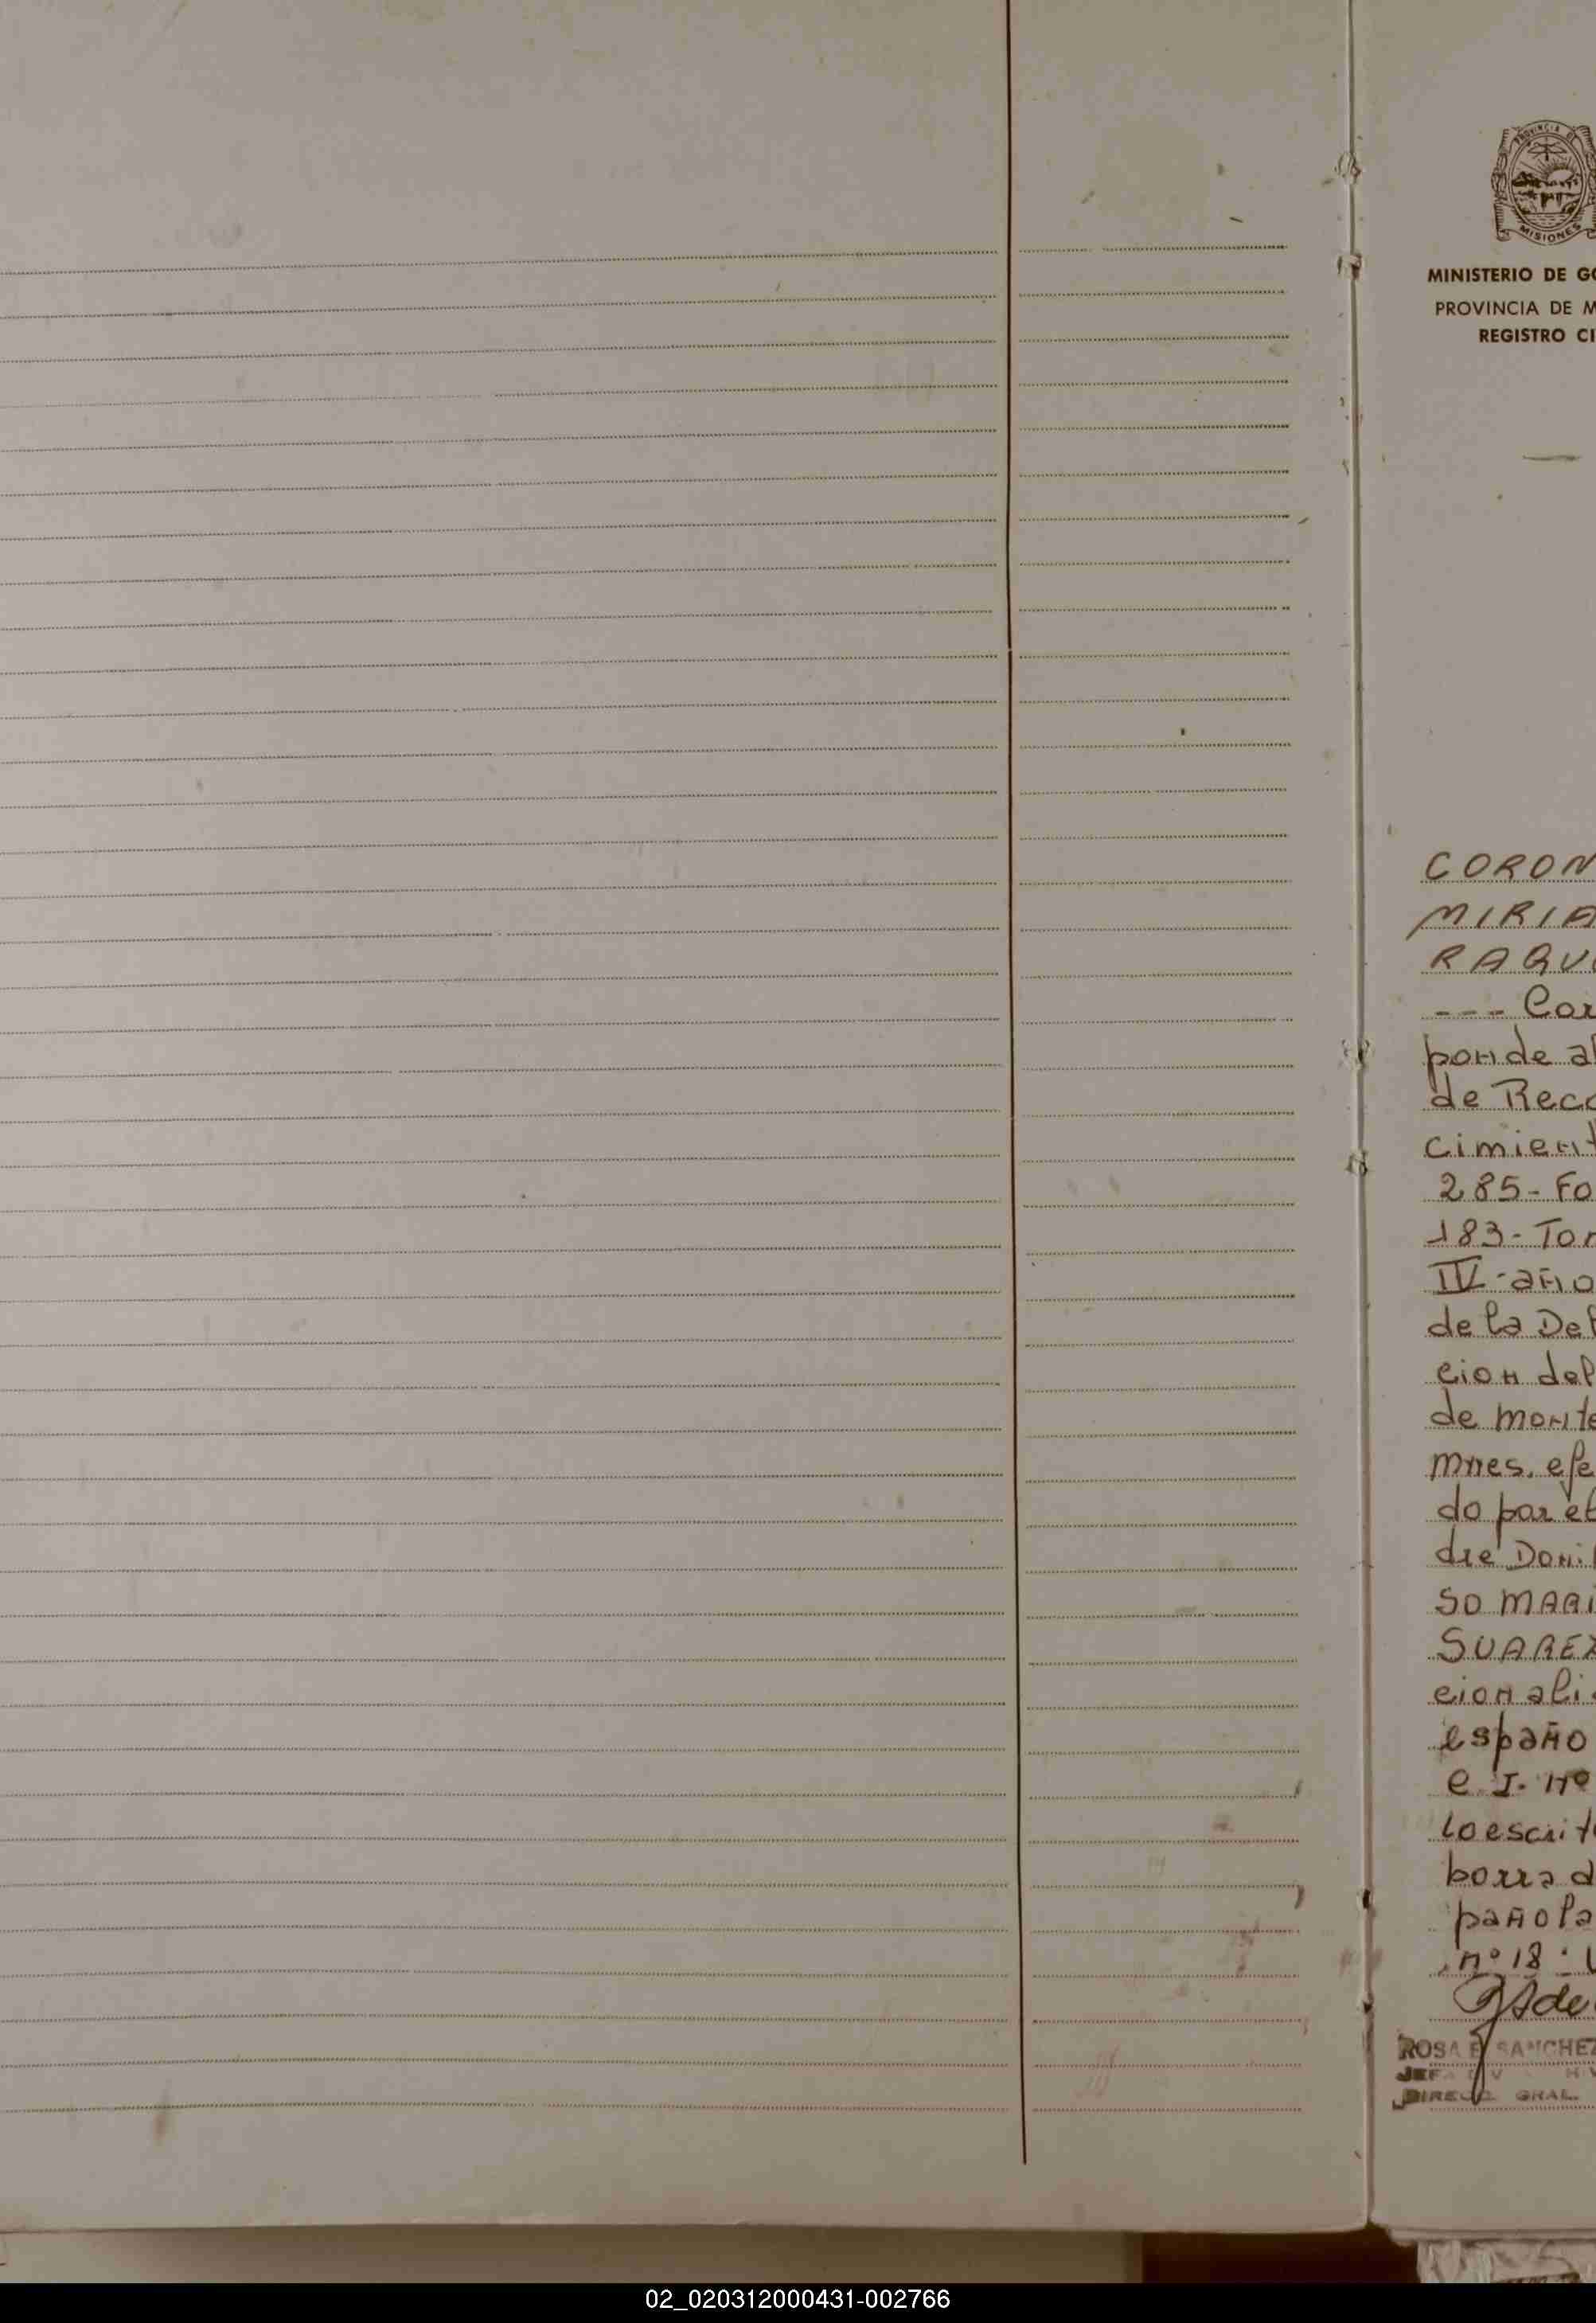 PROVINCIA DE
MISIONES
MINISTERIO DE GO
PROVINCIA DE M
REGISTRO CI
CORON
MIRIA
RAQUE
--- Cor
ponde al
de Reco
cimient
285- Fo
183- Tom
IV- año
de la Del
cion del
de monte
mnes. efe
do por el
dre Doni
SO MARI
SUAREZ
cion ali
españo
C. I. nº
lo escrit
borra d
pañola
nº 18:
ROSA E SANCHEZ
JEFA DIV
DIRECC GRAL
02_020312000431-002766